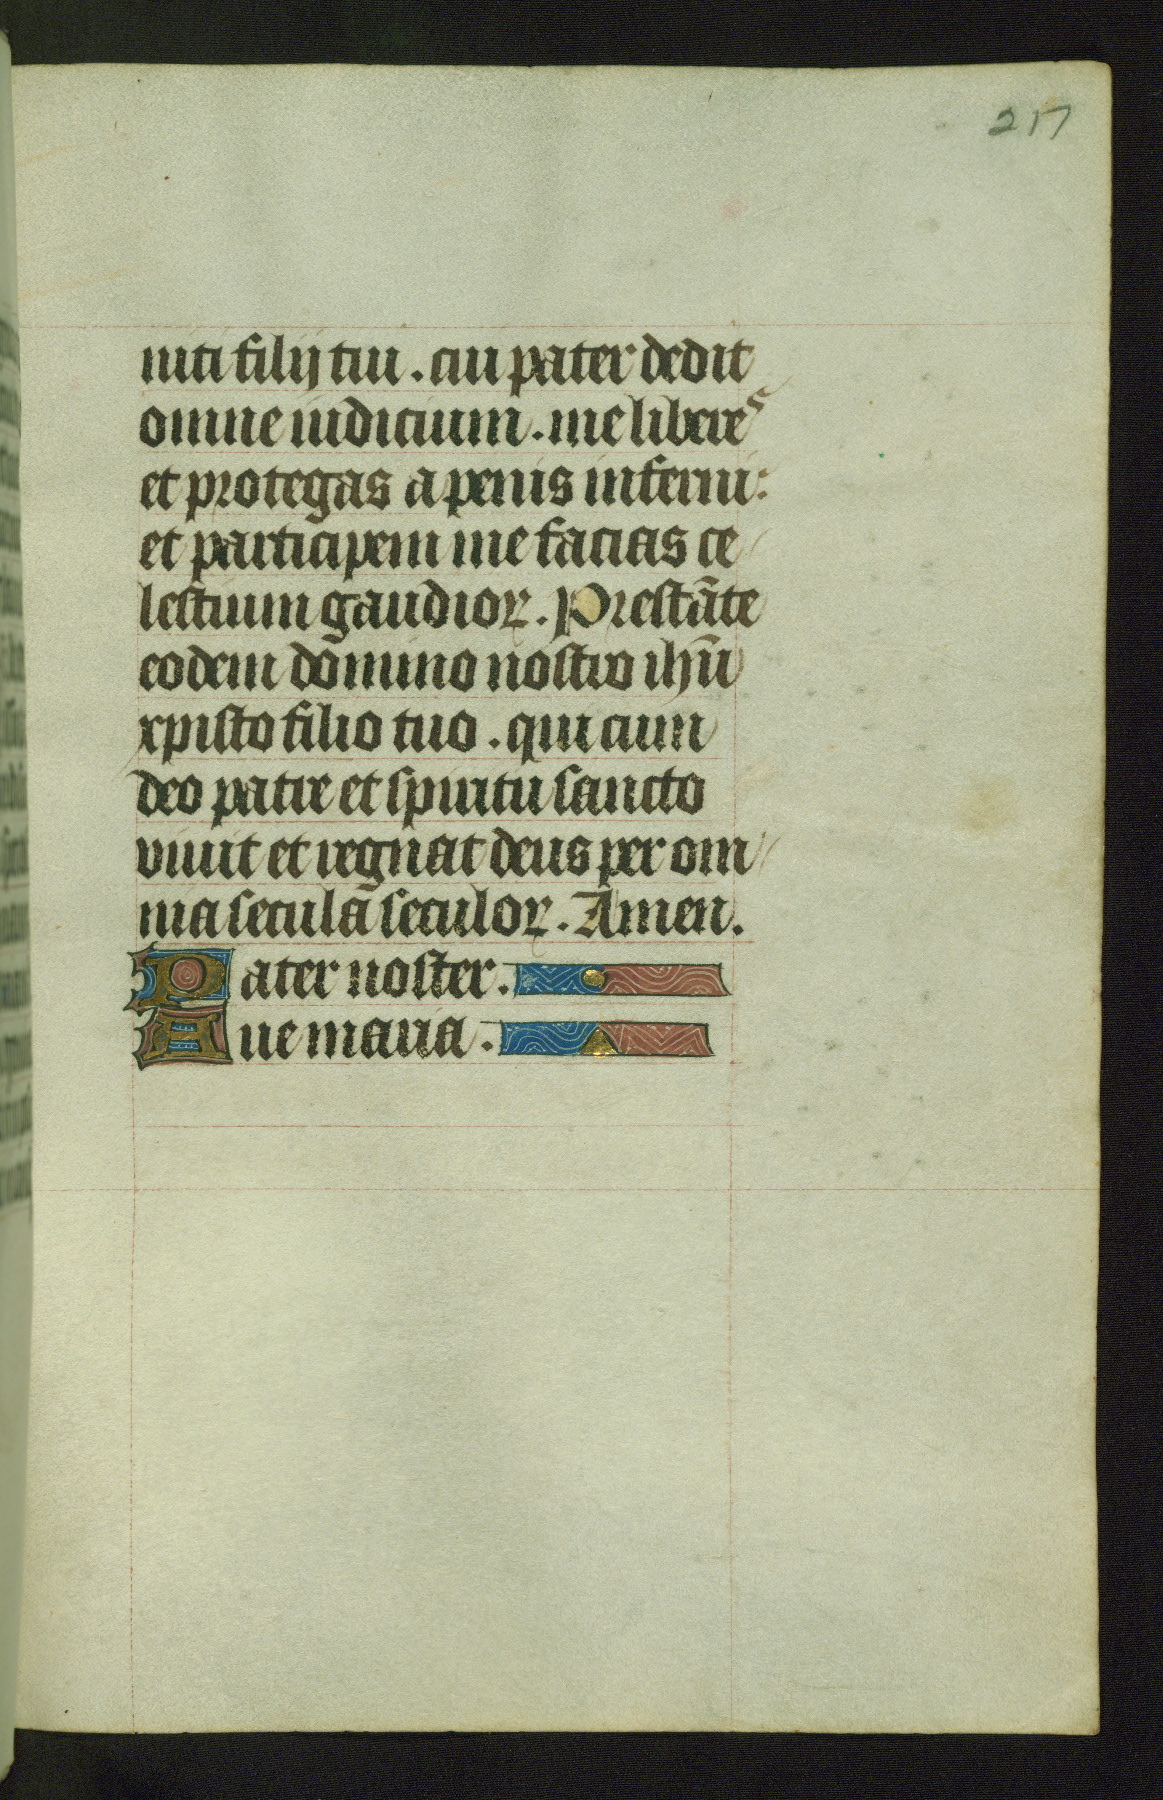 217
niti filij tui . cui pater dedit
omne iudicium . me liberes
et protegas a penis inferni :
et participem me facias ce
lestium gaudioꝝ . Prestãte
eodem dõmino nostro ihũ
xpisto filio tuo . qui cum
deo patre et spiritu sancto
viuit et regnat deus per om
nia seculã seculoꝝ . Amen .
Pater noster .
Aue maria .